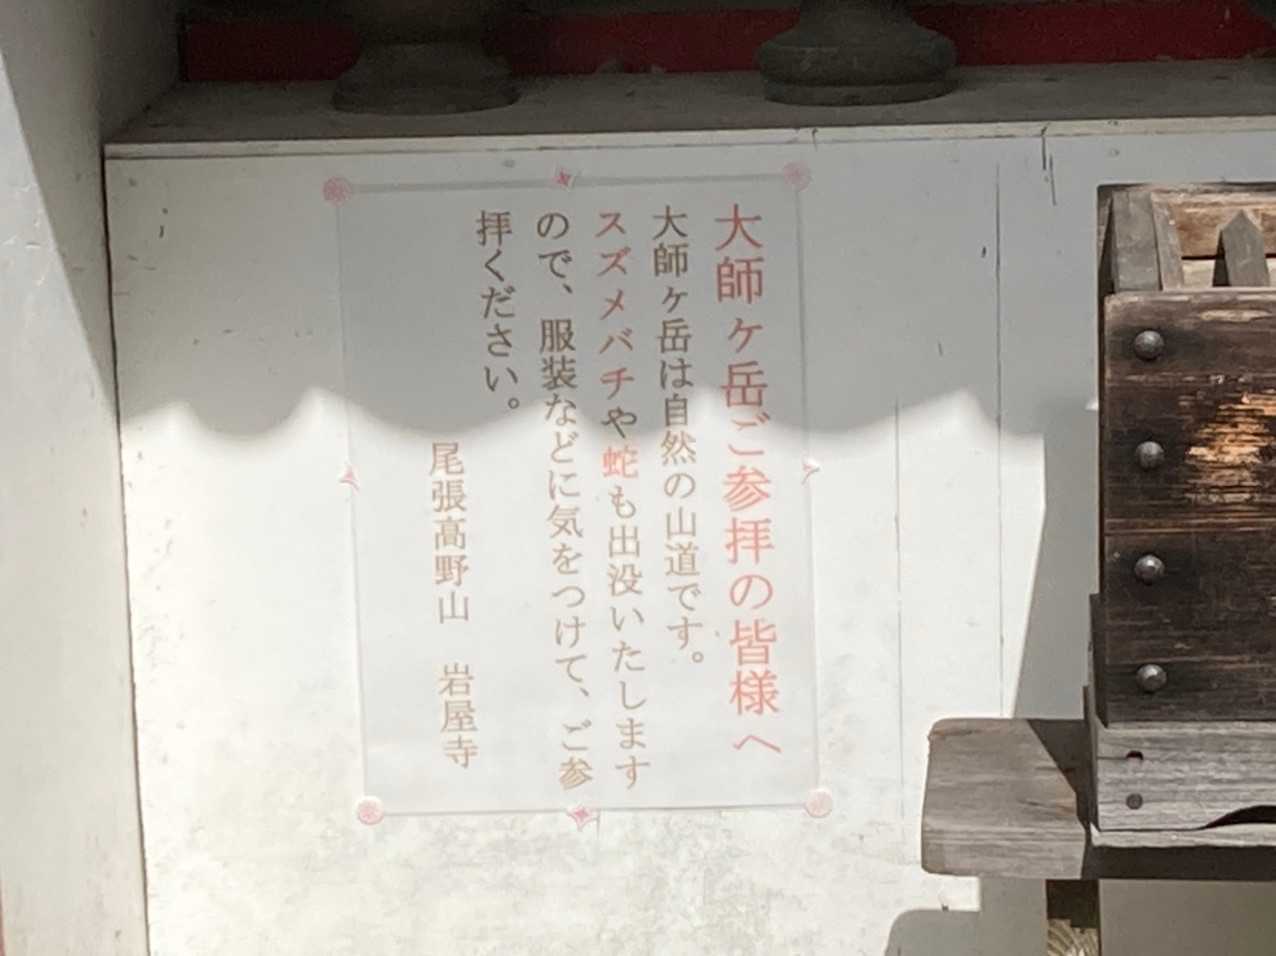 大師ヶ岳ご参拝の皆様へ
大師ヶ岳は自然の山道です。
スズメバチや蛇も出没いたします
ので、服装などに気をつけて、ご参
拝ください。
尾張高野山　岩屋寺